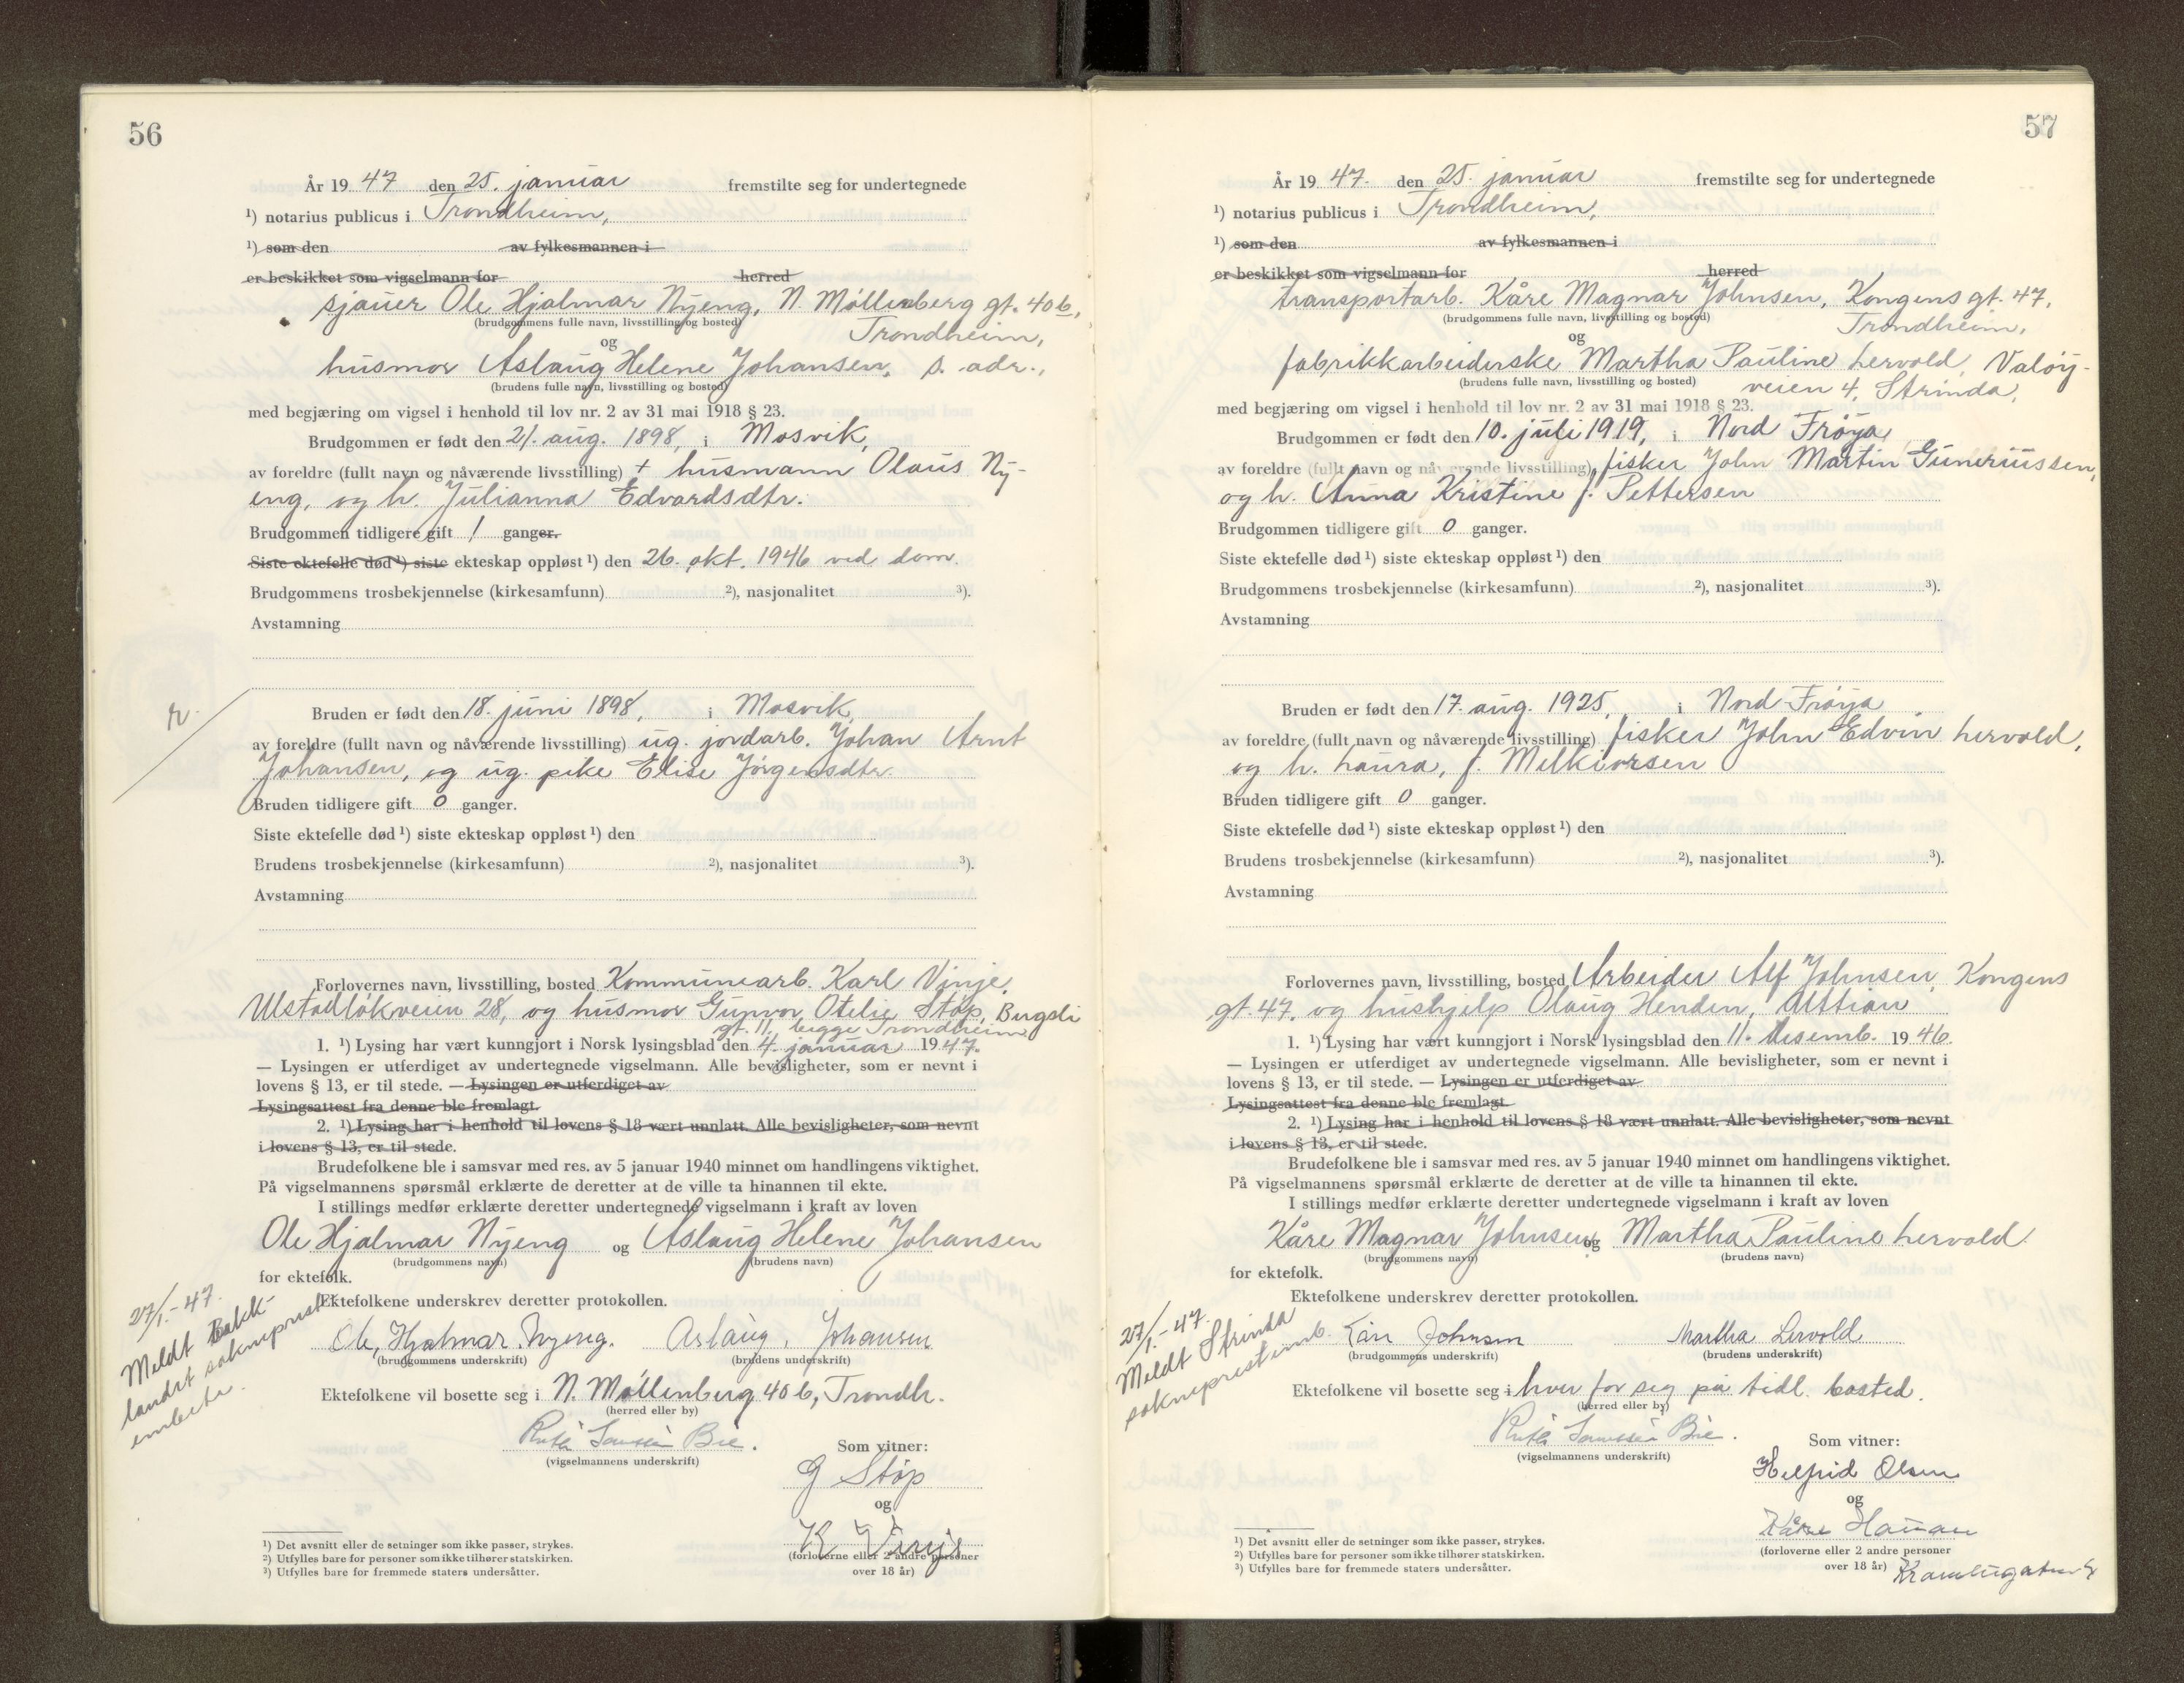 56
År 19 47 den 25. januar fremstilte seg for undertegnede
¹) notarius publicus i Trondheim,
¹) som den av fylkesmannen i
er beskikket som vigselmann for herred
sjauer Ole Hjalmar Nyeng, N. Møllenberg gt. 40 b,
(brudgommens fulle navn, livsstilling og bosted)
Trondheim,
og
husmor Aslaug Helene Johansen, s. adr.,
(brudens fulle navn, livsstilling og bosted)
med begjæring om vigsel i henhold til lov nr. 2 av 31 mai 1918 § 23.
Brudgommen er født den 21. aug. 1898, i Mosvik,
av foreldre (fullt navn og nåværende livsstilling) + husmann Olaus Ny-
eng, og h. Julianna Edvardsdtr.
Brudgommen tidligere gift 1 ganger.
Siste ektefelle død ¹) siste ekteskap oppløst ¹) den 26. okt. 1946 ved dom.
Brudgommens trosbekjennelse (kirkesamfunn) ²), nasjonalitet ³).
Avstamning
Bruden er født den 18. juni 1898, i Mosvik,
av foreldre (fullt navn og nåværende livsstilling) ug. jordarb. Johan Arnt
Johansen, og ug. pike Elise Jørgensdtr.
Bruden tidligere gift 0 ganger.
Siste ektefelle død ¹) siste ekteskap oppløst ¹) den
Brudens trosbekjennelse (kirkesamfunn) ²), nasjonalitet ³).
Avstamning
Forlovernes navn, livsstilling, bosted Kommunearb. Karl Vinje,
Ulstadløkveien 28, og husmor Gunvor Otelie Støp, Bugsli
gt. 11, begge Trondheim
1. ¹) Lysing har vært kunngjort i Norsk lysingsblad den 4. januar 19 47.
— Lysingen er utferdiget av undertegnede vigselmann. Alle bevisligheter, som er nevnt i
lovens § 13, er til stede. — Lysingen er utferdiget av
Lysingsattest fra denne ble fremlagt.
2. ¹) Lysing har i henhold til lovens § 18 vært unnlatt. Alle bevisligheter, som nevnt
i lovens § 13, er til stede.
Brudefolkene ble i samsvar med res. av 5 januar 1940 minnet om handlingens viktighet.
På vigselmannens spørsmål erklærte de deretter at de ville ta hinannen til ekte.
I stillings medfør erklærte deretter undertegnede vigselmann i kraft av loven
Ole Hjalmar Nyeng og Aslaug Helene Johansen
(brudgommens navn) (brudens navn)
for ektefolk.
Ektefolkene underskrev deretter protokollen.
27/1.-47.
Meldt Bakk-
landet sokneprest-
embete.
Ole, Hjalmar, Nyeng. Aslaug, Johansen
(brudgommens underskrift) (brudens underskrift)
Ektefolkene vil bosette seg i N. Møllenberg 40 b, Trondh.
(herred eller by)
Bie.
(vigselmannens underskrift)
Som vitner:
G Støp
og
K Vinje
(forloverne eller 2 andre personer
over 18 år)
¹) Det avsnitt eller de setninger som ikke passer, strykes.
²) Utfylles bare for personer som ikke tilhører statskirken.
³) Utfylles bare for fremmede staters undersåtter.
57
År 19 47. den 25. januar fremstilte seg for undertegnede
¹) notarius publicus i Trondheim,
¹) som den av fylkesmannen i
er beskikket som vigselmann for herred
transportarb. Kåre Magnar Johnsen, Kongens gt. 47,
(brudgommens fulle navn, livsstilling og bosted)
Trondheim,
og
fabrikkarbeiderske Martha Pauline Lervold, Valøy-
(brudens fulle navn, livsstilling og bosted)
veien 4, Strinda,
med begjæring om vigsel i henhold til lov nr. 2 av 31 mai 1918 § 23.
Brudgommen er født den 10. juli 1919, i Nord Frøya,
av foreldre (fullt navn og nåværende livsstilling) fisker John Martin Gunerіussen,
og h. Anna Kristine f. Pettersen
Brudgommen tidligere gift 0 ganger.
Siste ektefelle død ¹) siste ekteskap oppløst ¹) den
Brudgommens trosbekjennelse (kirkesamfunn) ²), nasjonalitet ³).
Avstamning
Bruden er født den 17. aug. 1925, i Nord-Frøya
av foreldre (fullt navn og nåværende livsstilling) fisker John Edvin Lervold,
og h. Laura, f. Melkiorsen
Bruden tidligere gift 0 ganger.
Siste ektefelle død ¹) siste ekteskap oppløst ¹) den
Brudens trosbekjennelse (kirkesamfunn) ²), nasjonalitet ³).
Avstamning
Forlovernes navn, livsstilling, bosted Arbeider Alf Johnsen, Kongens
gt. 47, og hushjelp Olaug Henden, Uttian
1. ¹) Lysing har vært kunngjort i Norsk lysingsblad den 11. desemb. 19 46.
— Lysingen er utferdiget av undertegnede vigselmann. Alle bevisligheter, som er nevnt i
lovens § 13, er til stede. — Lysingen er utferdiget av
Lysingsattest fra denne ble fremlagt.
2. ¹) Lysing har i henhold til lovens § 18 vært unnlatt. Alle bevisligheter, som nevnt
i lovens § 13, er til stede.
Brudefolkene ble i samsvar med res. av 5 januar 1940 minnet om handlingens viktighet.
På vigselmannens spørsmål erklærte de deretter at de ville ta hinannen til ekte.
I stillings medfør erklærte deretter undertegnede vigselmann i kraft av loven
Kåre Magnar Johnsen og Martha Pauline Lervold
(brudgommens navn) (brudens navn)
for ektefolk.
Ektefolkene underskrev deretter protokollen.
27/1.-47.
Meldt Strinda
sokneprestemb.
Kåre Johnsen Martha Lervold
(brudgommens underskrift) (brudens underskrift)
Ektefolkene vil bosette seg i hver for seg på tidl. bosted.
(herred eller by)
Bie.
(vigselmannens underskrift)
Som vitner:
Helfrid Olsen
og
Kåre Hauan
(forloverne eller 2 andre personer
over 18 år)
¹) Det avsnitt eller de setninger som ikke passer, strykes.
²) Utfylles bare for personer som ikke tilhører statskirken.
³) Utfylles bare for fremmede staters undersåtter.